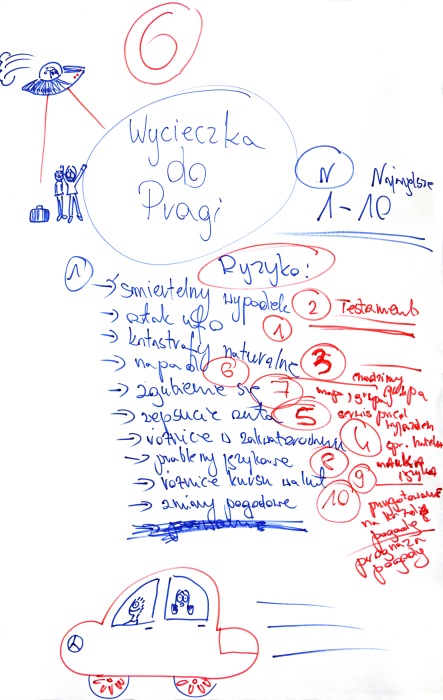 6
Wycieczka
do
Pragi
N
Najwyższe
1-10
Ryzyko:
1
→ śmiertelny wypadek 2 Testament
→ atak ufo 1
→ katastrofy naturalne 3
→ napady 6 chodzimy grupą
→ zgubienie się 7 mapa
→ zepsucie auta 5 serwis przed wyjazdem
→ różnice w zakwaterowaniu 4 spr. hotelu
→ problemy językowe 8 nauka języka
→ różnice kursu walut 9
→ zmiany pogodowe 10 przygotowanie
na każdą
pogodę
prognoza
pogody